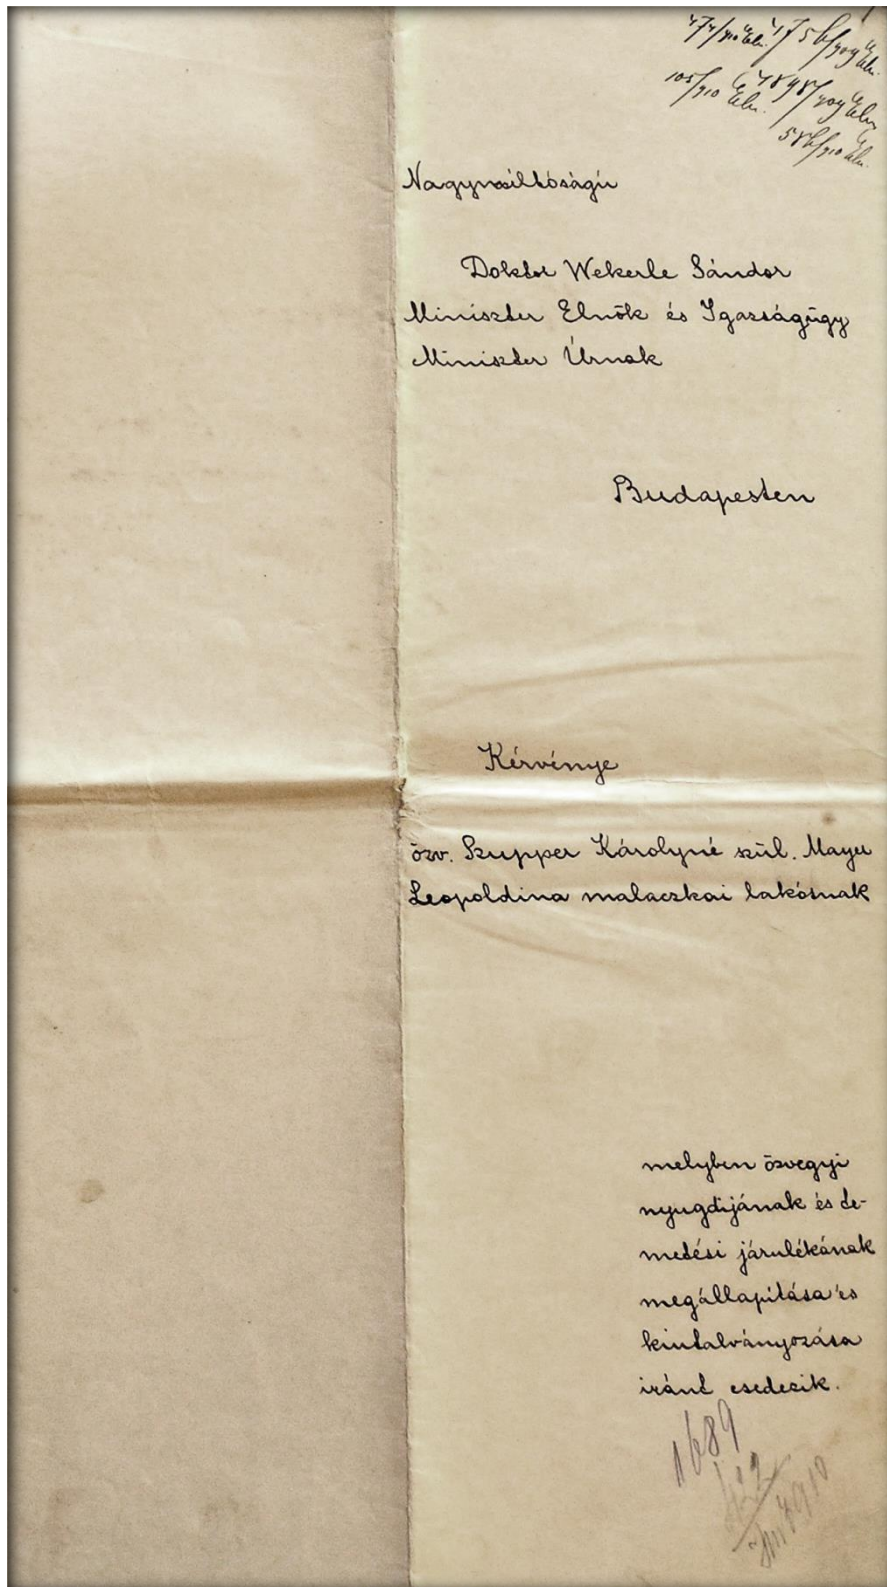 Nagyméltóságú
Doktor Wekerle Sándor
Miniszter Elnök és Igazságügy
Miniszter Úrnak
Budapesten
Kérvénye
özv. Szupper Károlyné szül. Mayer
Leopoldina malaczkai lakósnak
melyben özvegyi
nyugdijának és te-
metési járulékának
megállapítása és
kiutalványozása
iránt esedezik.
1689